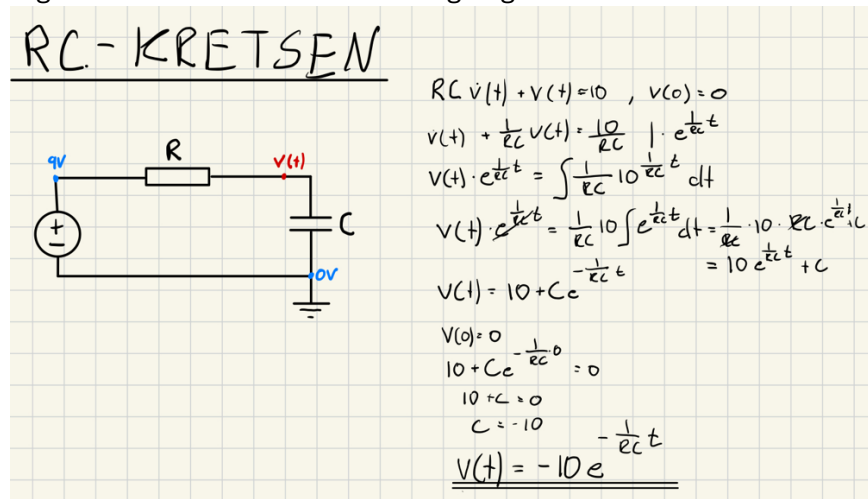 RC-KRETSEN
R
9V
V(t)
+
-
C
0V
RC v̇(t) + v(t) = 10 , v(0) = 0
v̇(t) + 1/RC v(t) = 10/RC | · e^(1/RC t)
v(t) · e^(1/RC t) = ∫ 1/RC 10^(1/RC t) dt
v(t) · e^(1/RC t) = 1/RC 10 ∫ e^(1/RC t) dt = 1/RC · 10 · RC · e^(1/RC t) + C
= 10 e^(1/RC t) + C
v(t) = 10 + C e^(-1/RC t)
V(0) = 0
10 + C e^(-1/RC · 0) = 0
10 + C = 0
C = -10
V(t) = -10 e^(-1/RC t)